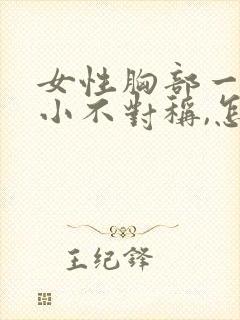 女性胸部一
小不對稱,怎
王纪锋